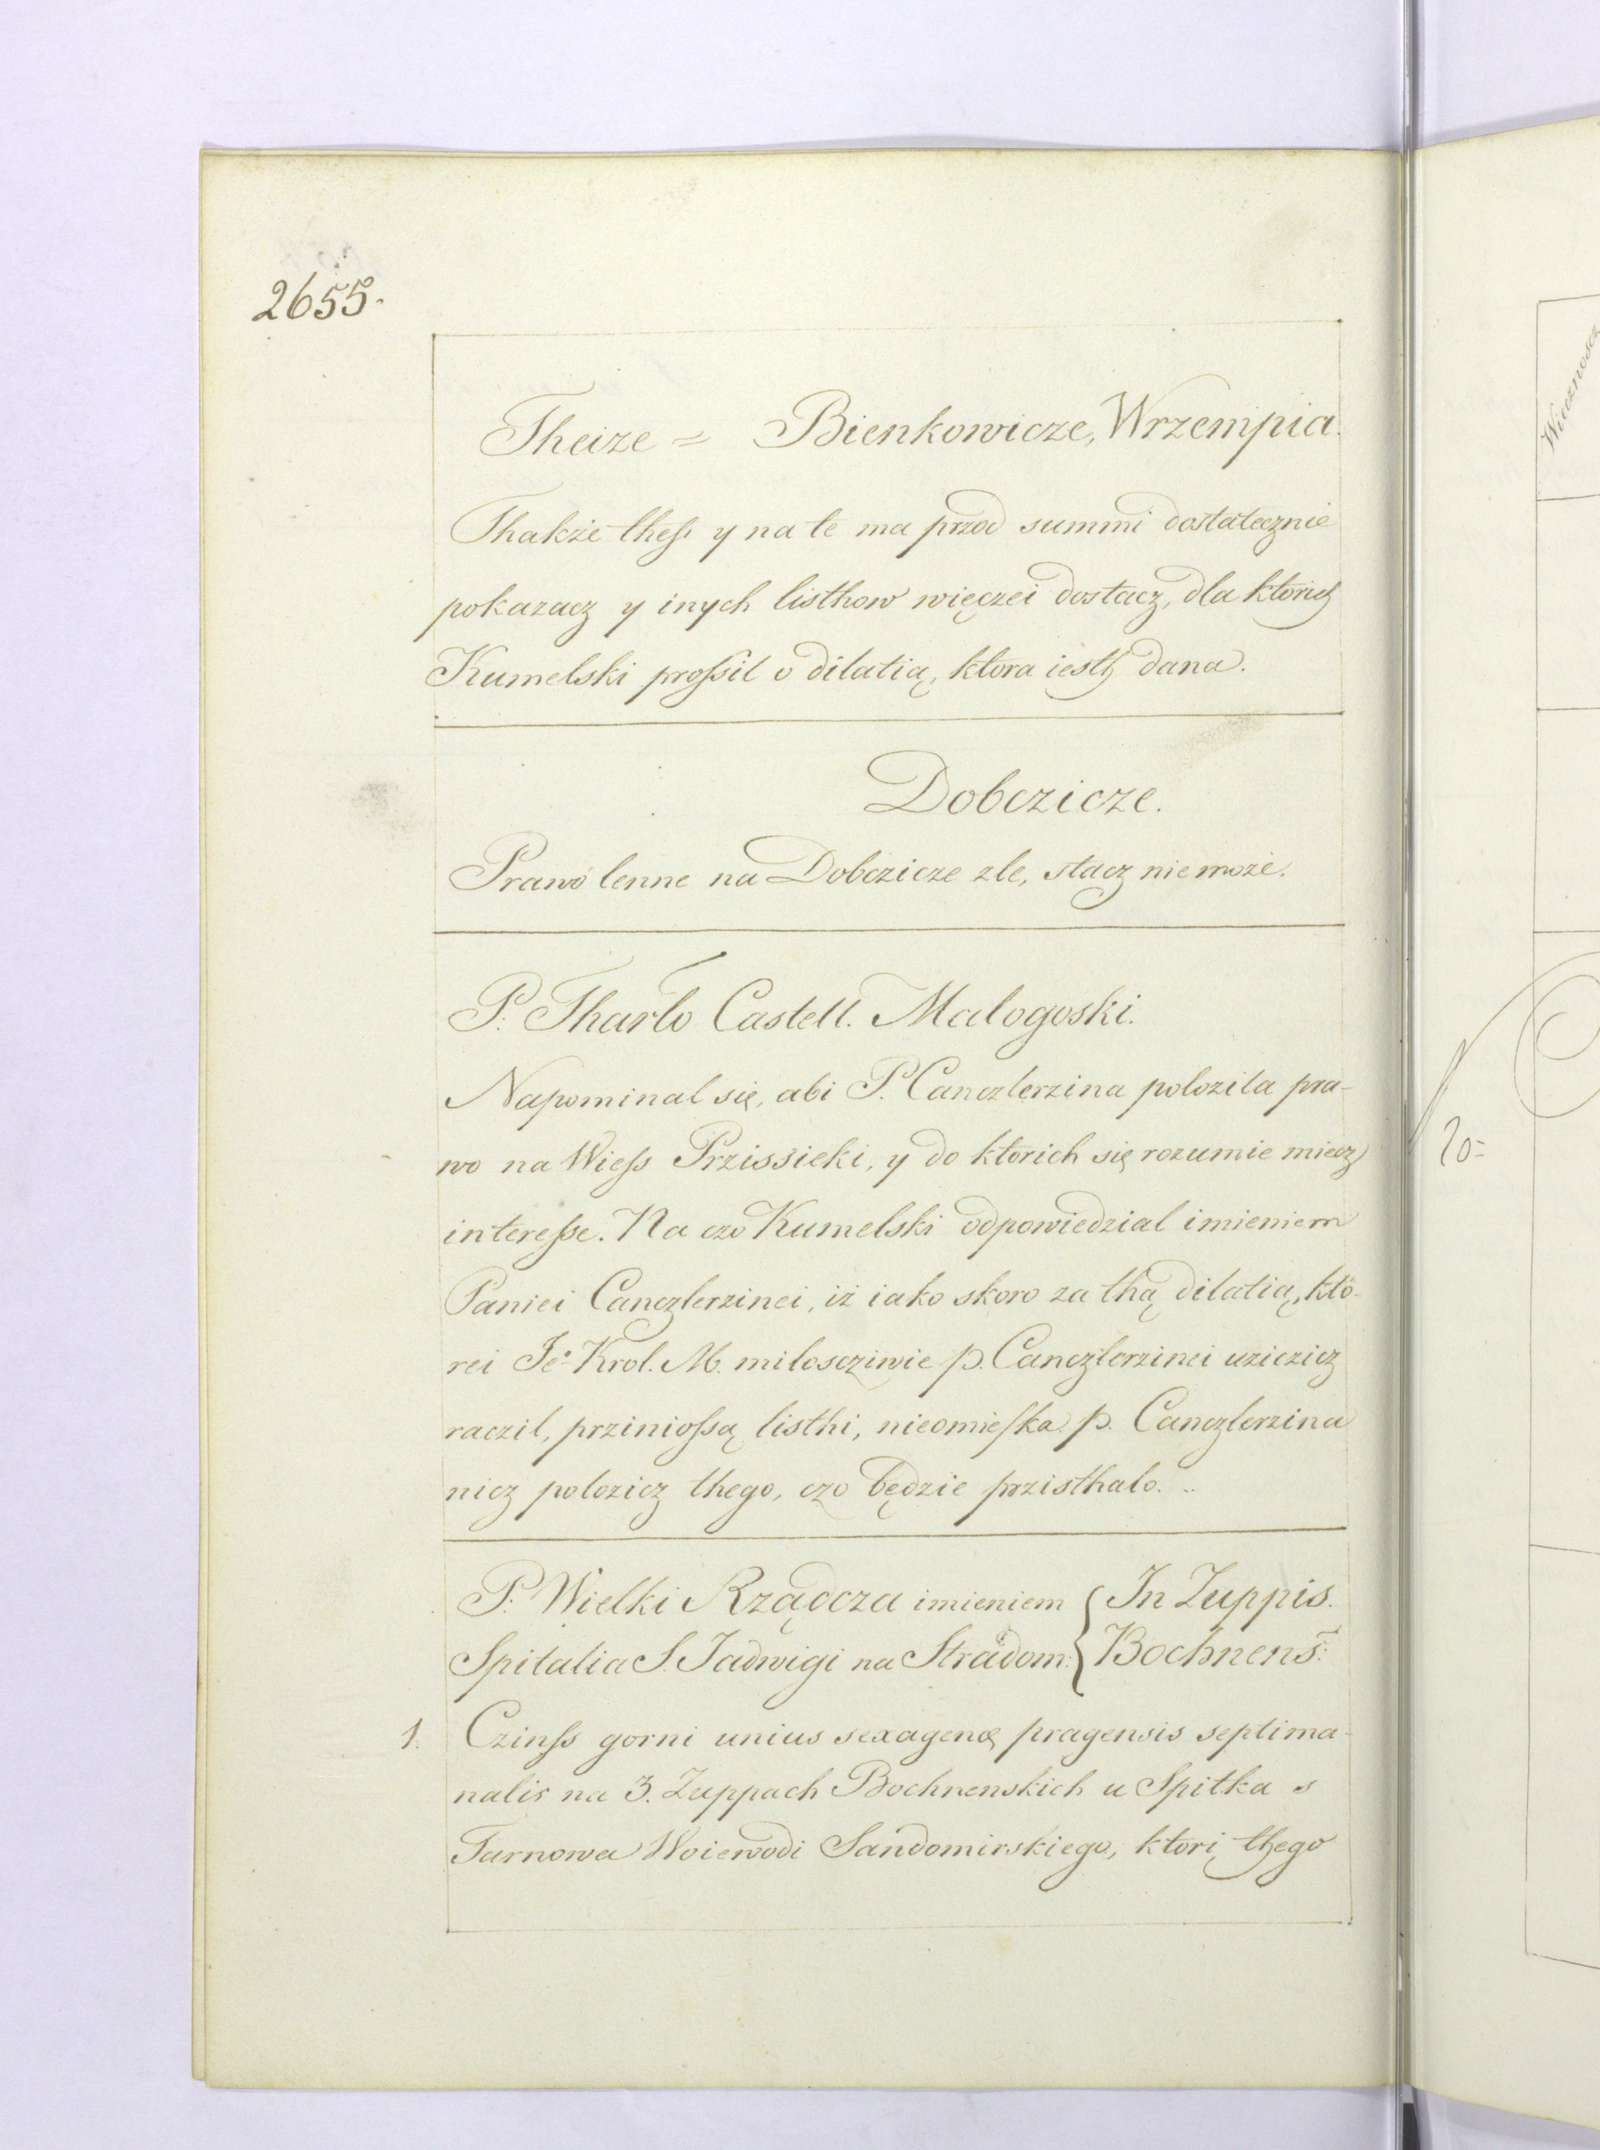 2655.
Theize = Bienkowicze, Wrzempia.
Thakże thesz y na te ma przod summi dostatecznie
pokazacz y inych listhow więczei dostacz, dla ktorich
Kumelski prossil o dilatią, ktora iesth dana.
Dobczicze.
Prawo lenne na Dobczicze zle, stacz nie może.
P. Tharlo Castell. Malogoski.
Napominal się, abi P. Canczlerzina polozila pra-
wo na Wiess Przissieki, y do ktorich się rozumie miecz
interesse. Na czo Kumelski odpowiedzial imieniem
Paniei Canczlerzinei, iż iako skoro za thą dilatią, kto-
rei Je° Krol. M. miloscziwie p. Canczlerzinei uziczicz
raczil, prziniossą listhi, nieomieska p. Canczlerzina
nicz polozicz thego, czo będzie przisthalo.
P. Wielki Rządcza imieniem { In Zuppis.
Spitalia S. Jadwigi na Stradom: { Bochnens:
1. Czinss gorni unius sexagenę pragensis septima-
nalis na 3. Zuppach Bochnenskich u Spitka s
Tarnowa Woiewodi Sandomirskiego, ktori thego
Wiecznoscz
20=